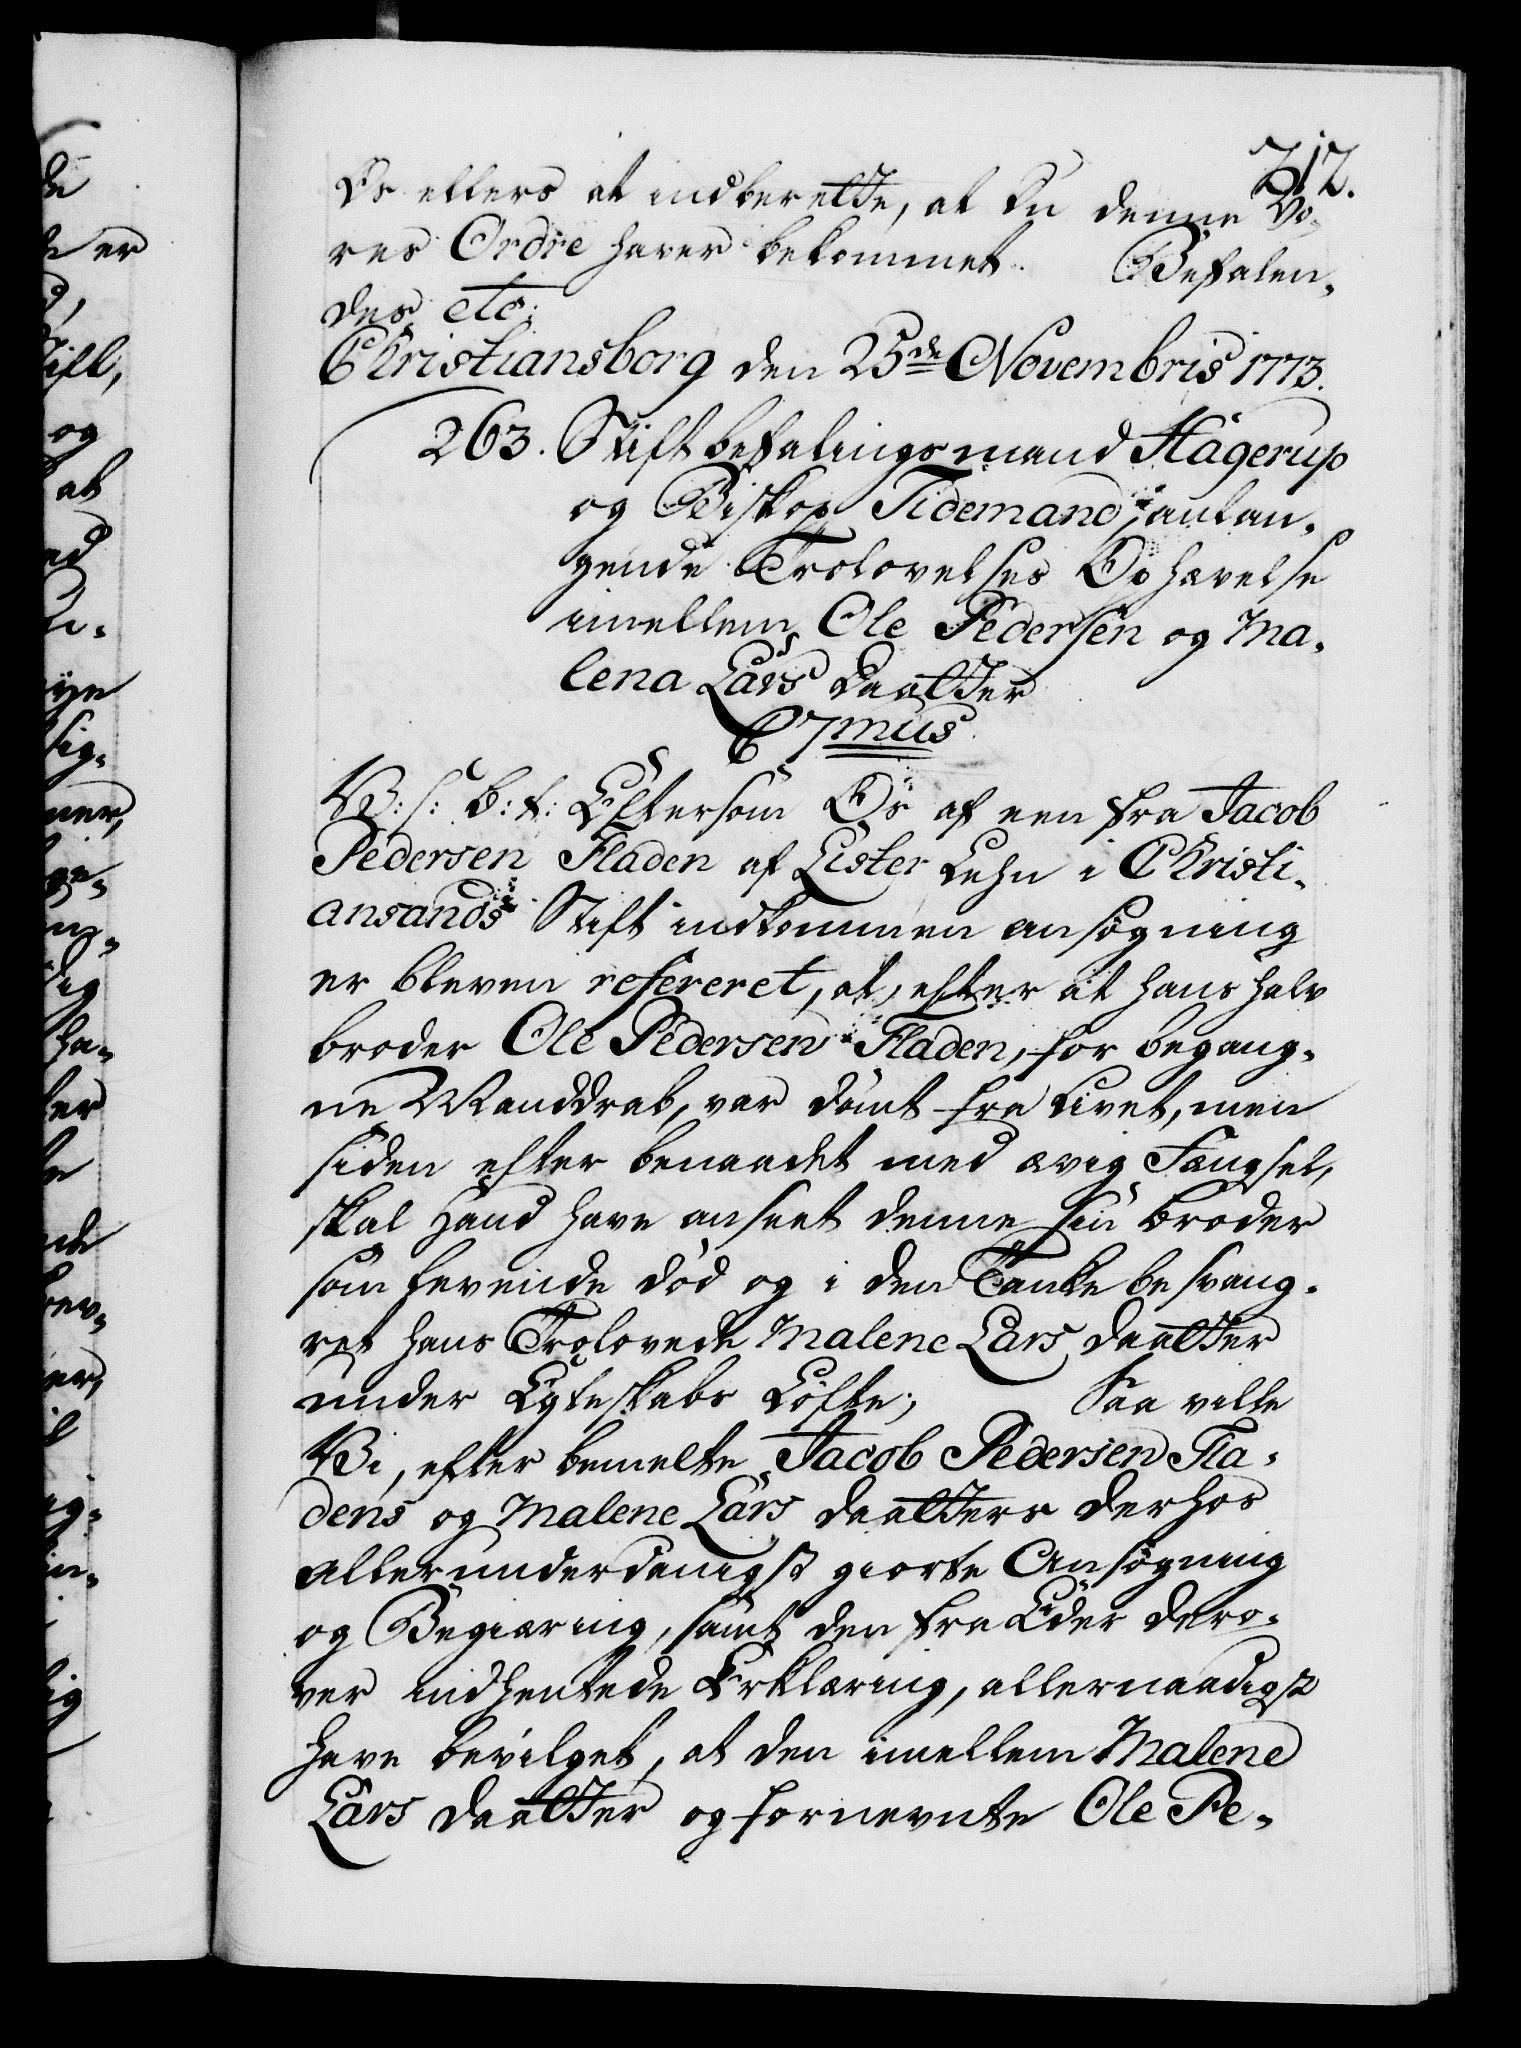 212.
Os ellers at indberette, at Du denne Vo-
res Ordre haver bekommet. Befalen-
des etc:
Christiansborg den 25de Novembris 1773.
263. Stiftbefalingsmand Hagerup
og Biskop Tidemand, anlan-
gende Trolovelses Ophævelse
imellem Ole Pedersen og Ma-
lena Lars Daatter
C 7mus
V: s: B: t: Eftersom Os af een fra Jacob
Pedersen Fladen af Lister Lehn i Christi-
ansands Stift indkommen ansøgning
er bleven refereret, at, efter at hans halv
broder Ole Pedersen Fladen, for begang-
ne Manddrab, var dømt fra Livet, men
siden efter benaadet med ævig Fængsel,
skal Hand have anseet denne sin broder
som hevende død og i den Tanke besvang-
ret hans Trolovede Malene Lars Daatter
under Egteskabs Løfte; Saa ville
Vi, efter bemelte Jacob Pedersen Fla-
dens og Malene Lars Daatters derhos
allerunderdanigst giorte Ansøgning
og Begiæring, samt den fra Eder dero-
ver indhentede Erklæring, allernaadigst
have bevilget, at den imellem Malene
Lars Daatter og fornevnte Ole Pe-